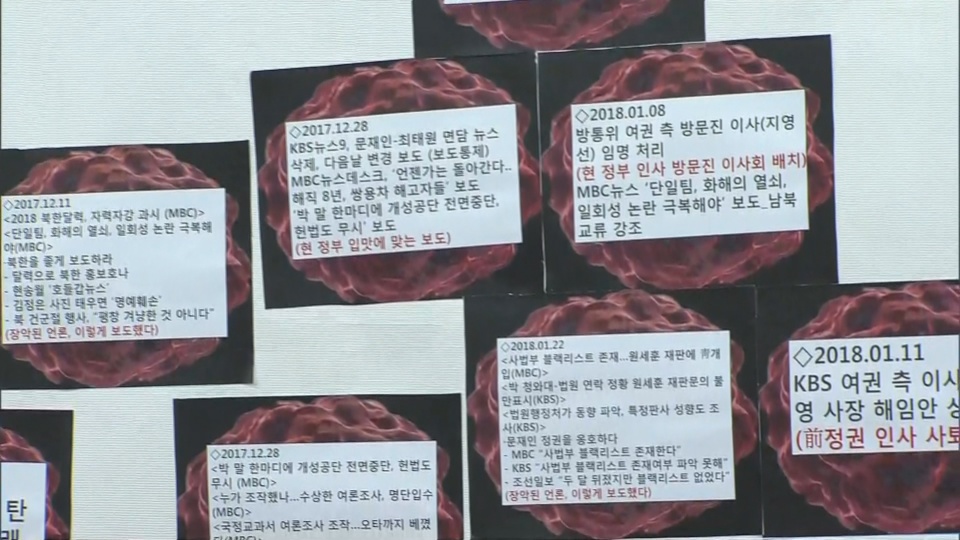 ◇2017.12.28
KBS뉴스9, 문재인-최태원 면담 뉴스
삭제, 다음날 변경 보도 (보도통제)
MBC뉴스데스크, '언젠가는 돌아간다..
해직 8년, 쌍용차 해고자들' 보도
'박 말 한마디에 개성공단 전면중단,
헌법도 무시' 보도
(현 정부 입맛에 맞는 보도)
◇2018.01.08
방통위 여권 측 방문진 이사(지영
선) 임명 처리
(현 정부 인사 방문진 이사회 배치)
MBC뉴스 '단일팀, 화해의 열쇠,
일회성 논란 극복해야' 보도_남북
교류 강조
◇2017.12.11
<2018 북한달력, 자력자강 과시 (MBC)>
<단일팀, 화해의 열쇠, 일회성 논란 극복해
야(MBC)>
-북한을 좋게 보도하라
- 달력으로 북한 홍보호나
- 현송월 '호들갑뉴스'
- 김정은 사진 태우면 '명예훼손'
- 북 건군절 행사, "평창 겨냥한 것 아니다"
(장악된 언론, 이렇게 보도했다)
◇2018.01.22
<사법부 블랙리스트 존재...원세훈 재판에 靑개
입(MBC)>
<박 청와대·법원 연락 정황 원세훈 재판문의 불
만표시(KBS)>
<법원행정처가 동향 파악, 특정판사 성향도 조
사(KBS)>
-문재인 정권을 옹호하다
- MBC "사법부 블랙리스트 존재한다"
- KBS "사법부 블랙리스트 존재여부 파악 못해"
- 조선일보 "두 달 뒤졌지만 블랙리스트 없었다"
(장악된 언론, 이렇게 보도했다)
◇2018.01.11
KBS 여권 측 이사
영 사장 해임안 상
(前정권 인사 사퇴
◇2017.12.28
<박 말 한마디에 개성공단 전면중단, 헌법도
무시 (MBC)>
<누가 조작했나...수상한 여론조사, 명단입수
(MBC)>
<국정교과서 여론조사 조작...오타까지 베꼈
탄